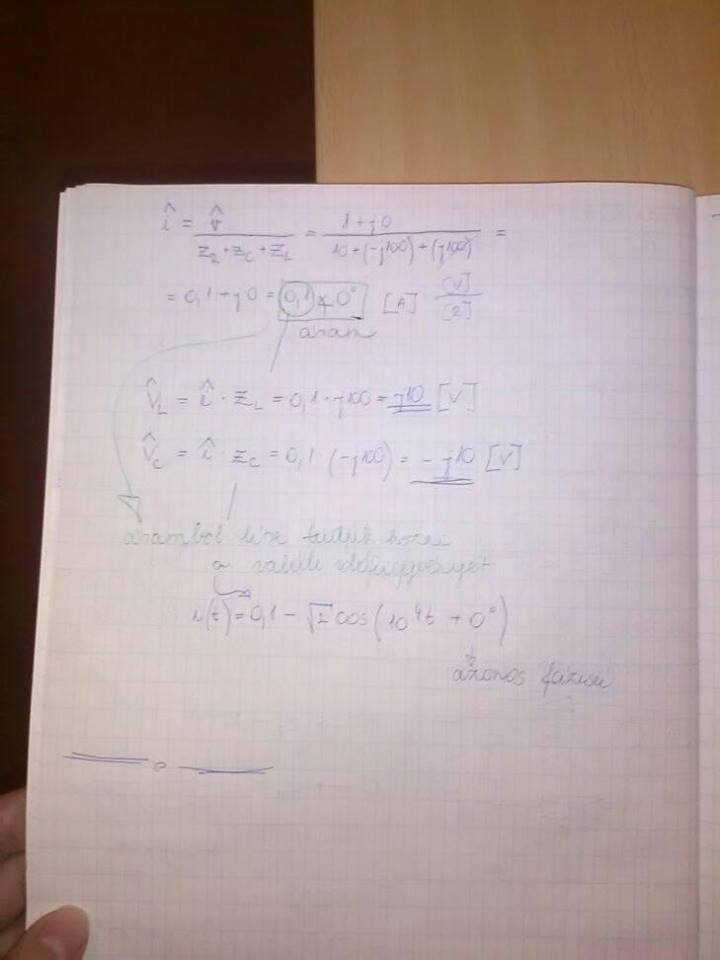 î = v̂ / (Z_R + Z_C + Z_L) = (1 + j0) / (10 + (-j100) + (j100)) =
= 0,1 + j0 = 0,1 ∡ 0° [A] [V]/[Ω]
áram
V̂_L = î · Z_L = 0,1 · j100 = j10 [V]
V̂_C = î · Z_C = 0,1 · (-j100) = -j10 [V]
áramból tudjuk
a valódi időfüggvényét
i(t) = 0,1 - √2 cos(10⁴t + 0°)
azonos fázisú